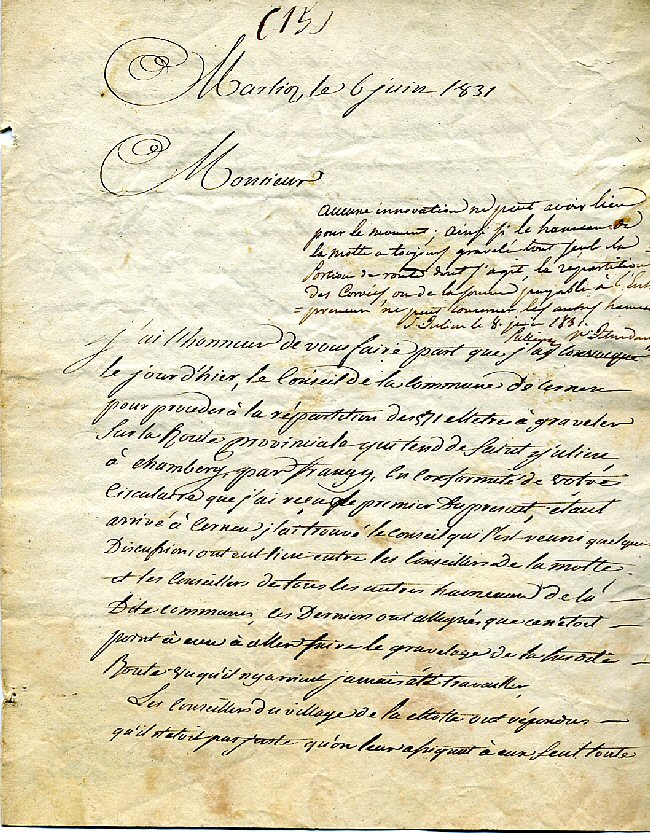 (15)
Marlioz, le 6 juin 1831
Monsieur
aucune innovation ne peut avoir lieu
pour le moment; ainsi si le hameau de
la motte a toujours gravelé tout seul la
portion de route dont s'agit, la répartition
des Corvées ou de la somme payable à l'entre
=preneur ne peut concerner les autres hameaux
St Julien le 8 juin 1831.
J'ai l'honneur de vous faire part que j'ai convoqué
le jour d'hier, le Conseil de la Commune de Cernex
pour proceder à la répartition des 571 mètre à graveler
sur la Route provinciale qui tend de Saint Julien
à Chambery, par frangy, en conformité de votre
Circulaire que j'ai reçu le premier du present, étant
arrivé à Cernex j'ai trouvé le conseil qui s'est reuni quelque
Discussions ont eut lieu entre les Conseillers de la motte
et les Conseillers de tous les autres hameaux de la
Dite commune, ces Derniers ont allegués que ce n'etoit
point à eux à aller faire le gravelage de la sus dite
Route vu qu'il n'y avoient jamais été travailler
Les Conseillers du village de la Motte ont répondus
qu'il n'etoit pas juste qu'on leur à eux seul toute